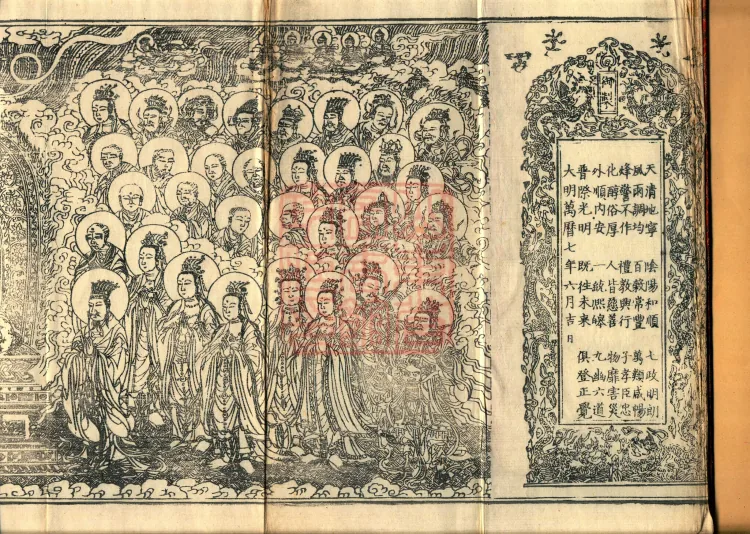 御製
天清地寧 陰陽和順 七政明朗
風雨調均 百穀常豐 萬類咸暢
烽警不作 禮教興行 子孝臣忠
化醇俗厚 人皆慈善 物靡害災
外順內安 一統熙 九幽六道
普際光明 既往未來 俱登正覺
大明萬曆七年六月吉日